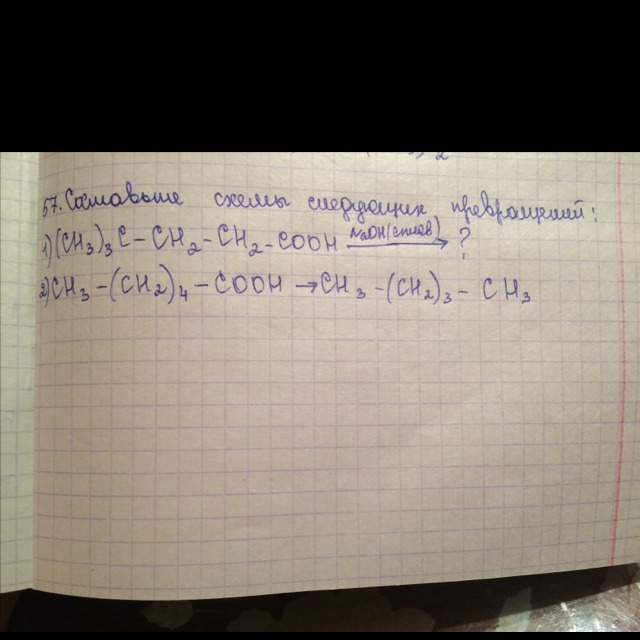 57. Составьте схемы следующих превращений:
1) (CH₃)₃C – CH₂ – CH₂ – COOH NaOH(сплав)→ ?
2) CH₃ – (CH₂)₄ – COOH → CH₃ – (CH₂)₃ – CH₃